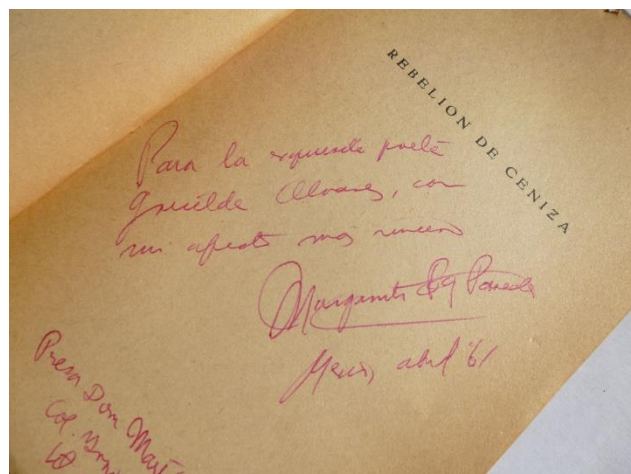 REBELION DE CENIZA
Para la exquisita poeta
Griselda Alvarez, con
mi afecto más sincero
Margarita Paz Paredes
México, abril '61
Presa Don Mart
Col.